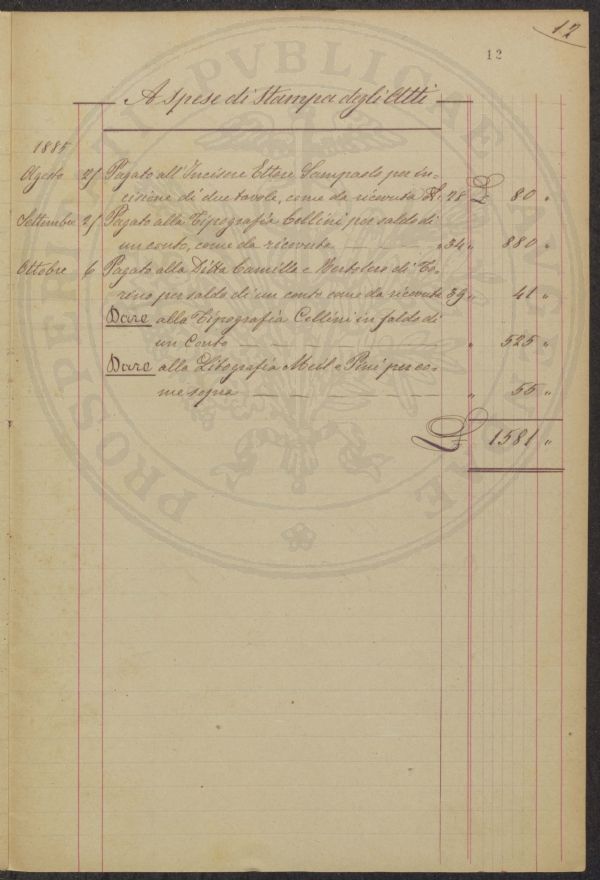 12
12
A spese di stampa degli Atti
1885
Agosto 25 Pagato all'Incisore Ettore Sampaolo per in-
cisione di due tavole, come da ricevuta N. 28 £ 80 "
Settembre 25 Pagato alla Tipografia Cellini per saldo di
un conto, come da ricevuta — — — " 34 " 880 "
Ottobre 6 Pagato alla Ditta Camilla e Bertolero di To-
rino per saldo di un conto come da ricevuta 39 " 41 "
Dare alla Tipografia Cellini in saldo di
un Conto — — — — — " 525 "
Dare alla Litografia e Pini per co-
me sopra — — — — — " 55 "
£ 1581 "
PROSPERITATI PVBLICAE AVGENDAE